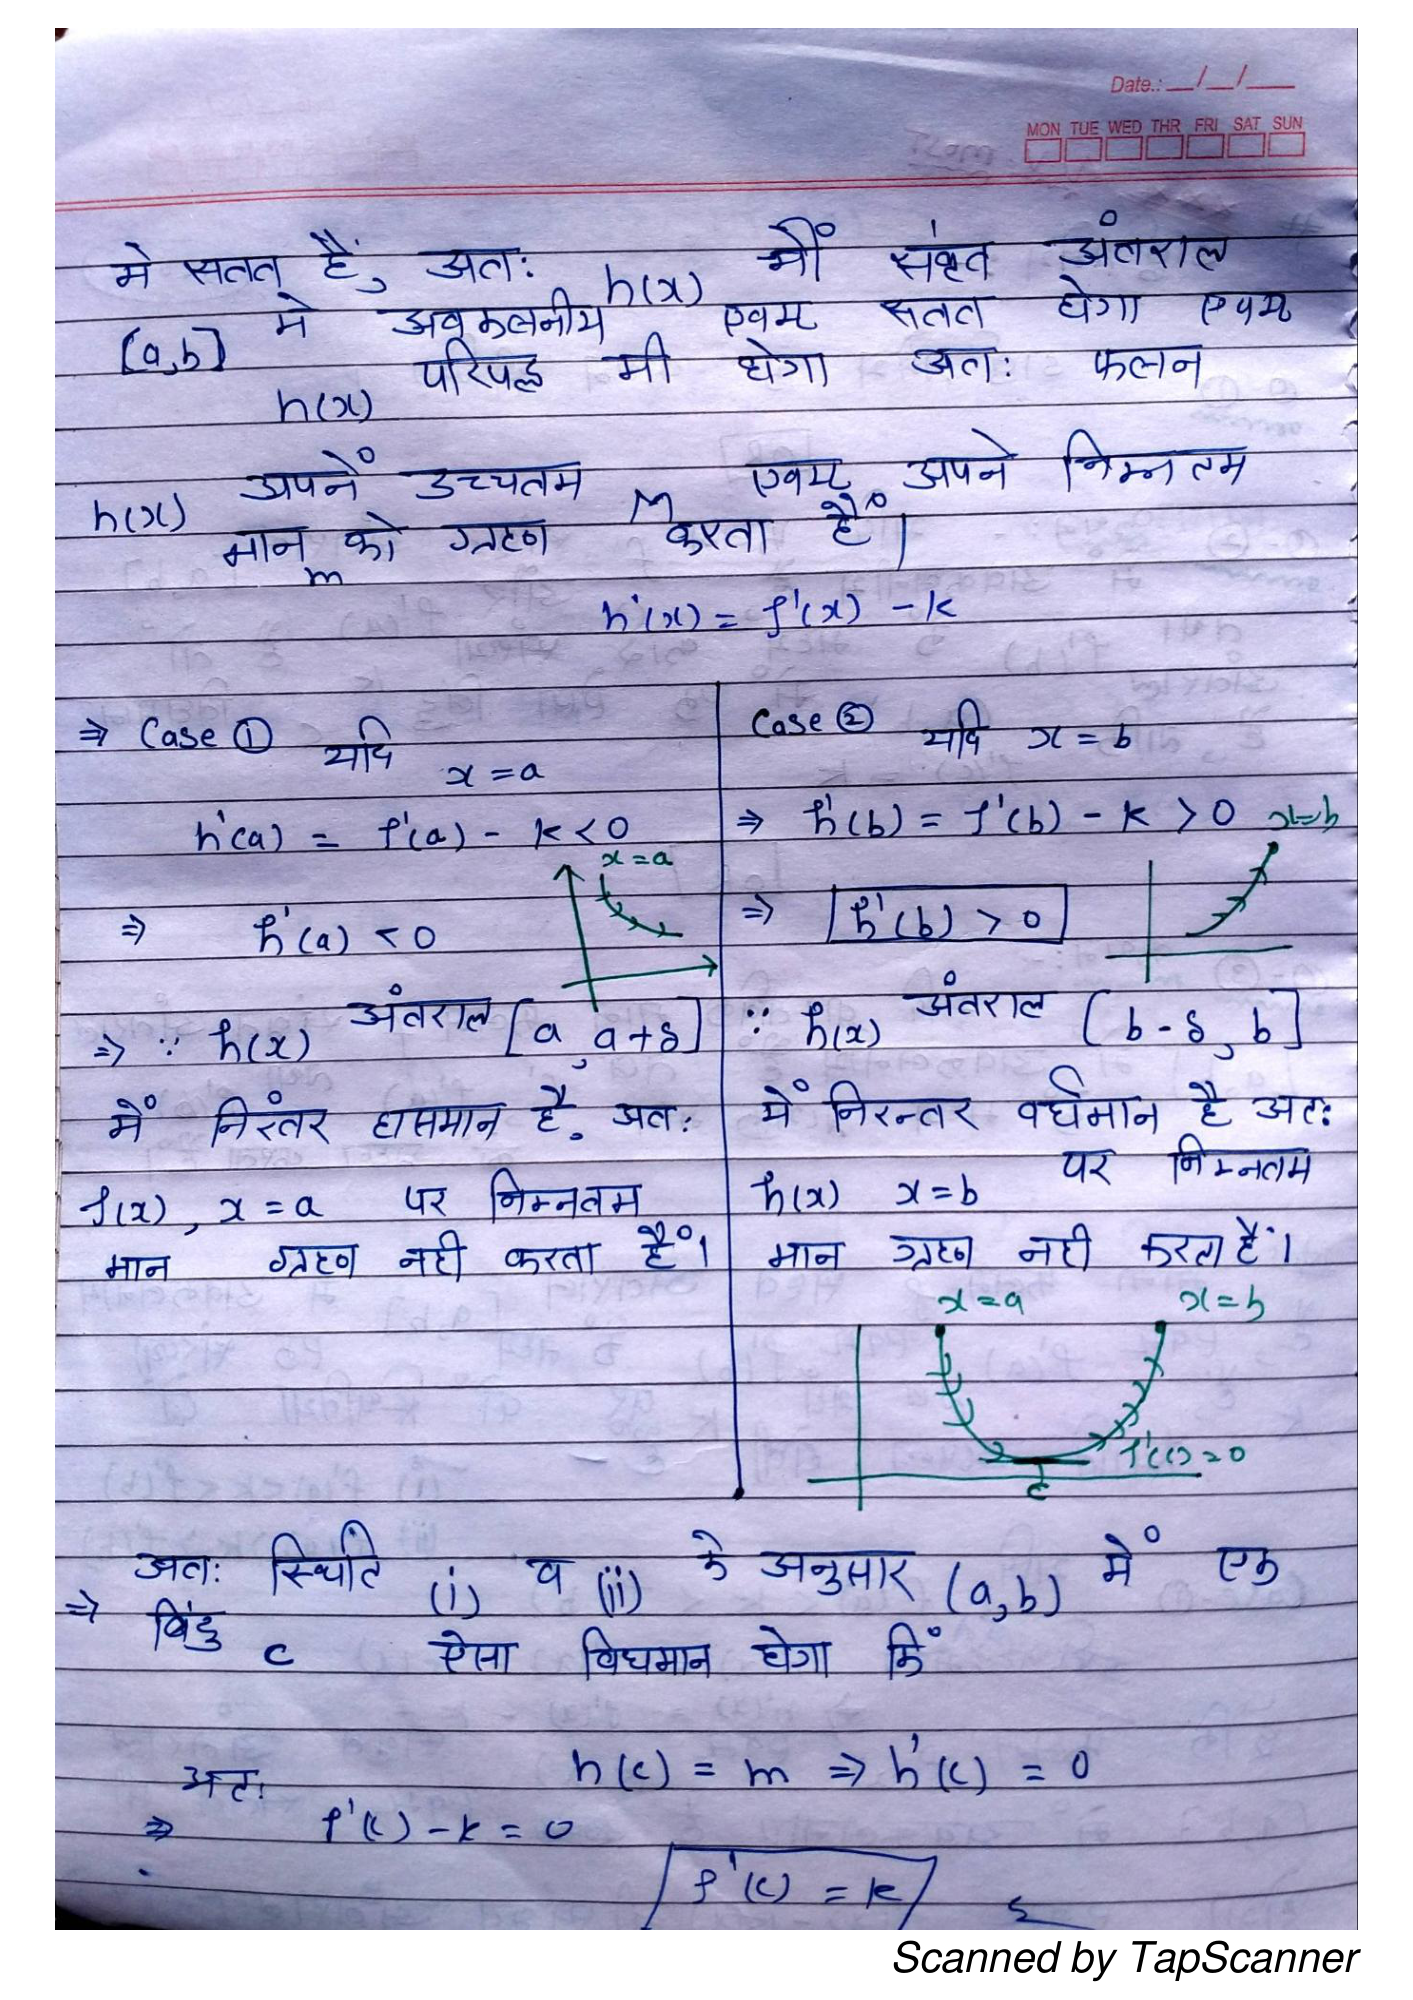 Date.: __/__/___
MON TUE WED THR FRI SAT SUN
मे सतत् हैं, अतः h(x) भीं संवृत अंतराल
[a,b] में अवकलनीय एवम् सतत होगा एवम्
h(x) परिपद्ध भी होगा अतः फलन
h(x) अपनें उच्चतम M एवम् अपने निम्नतम
मान m को ग्रहण करता हैं।
h'(x) = f'(x) - k
⇒ Case ① यदि x = a
h'(a) = f'(a) - k < 0
x = a
⇒ h'(a) < 0
⇒ ∵ h(x) अंतराल [a, a+δ]
में निरंतर हासमान है, अतः
f(x), x = a पर निम्नतम
मान ग्रहण नही करता हैं।
Case ② यदि x = b
⇒ h'(b) = f'(b) - k > 0
x=b
⇒ h'(b) > 0
∵ h(x) अंतराल [b-δ, b]
में निरन्तर वर्धमान है अतः
h(x) x = b पर निम्नतम
मान ग्रहण नही करता हैं।
x = a x = b
f'(c) = 0
c
अतः स्थिति (i) व (ii) के अनुसार (a,b) में एक
⇒ बिंदु c ऐसा विधमान होगा किं
अतः h(c) = m ⇒ h'(c) = 0
⇒ f'(c) - k = 0
f'(c) = k
Scanned by TapScanner